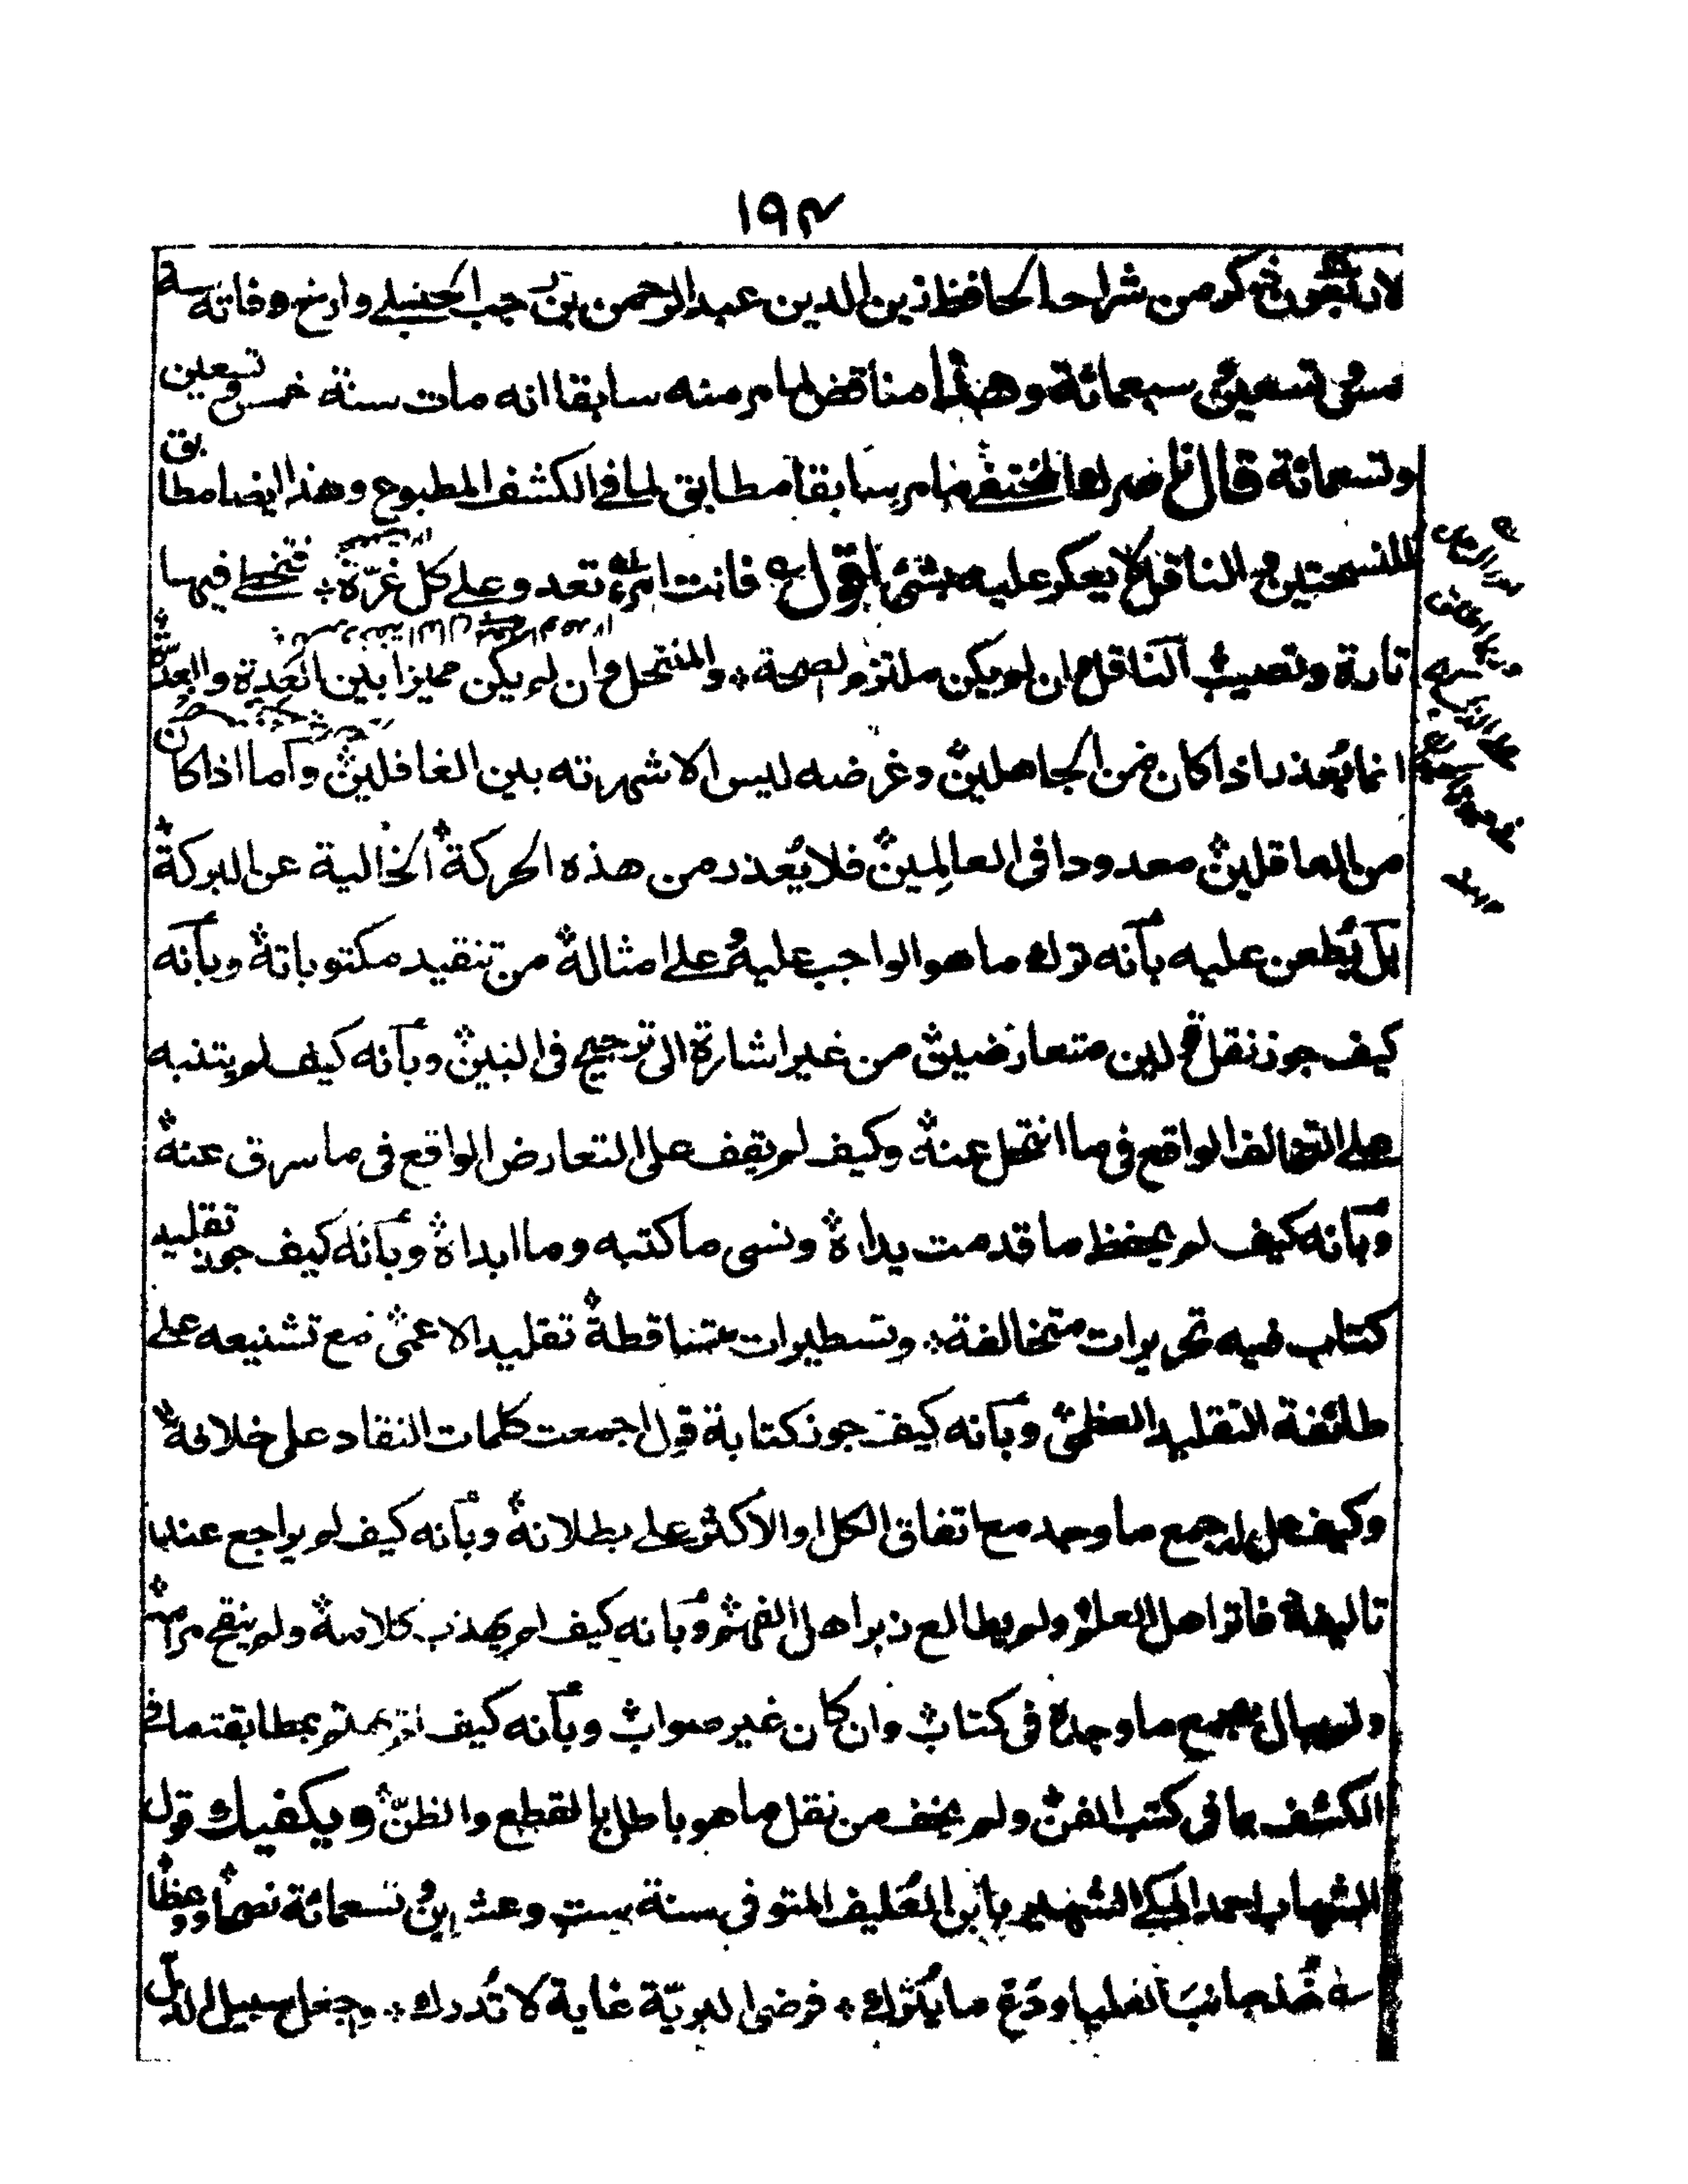 ١٩٤
ذكر من شراحه الحافظ زين الدين عبد الرحمن بن رجب الحنبلي وارخ وفاته سنة
تسعين وسبعمائة وهذا مناقض لما مر منه سابقا انه مات سنة خمس وتسعين
وتسعمائة قال ما مر سابقا مطابق لما في الكشف المطبوع وهذا ايضا مطابق
للنسختين والناقل لا يعكر عليه بشئ اقول فانت امرء تعدو على كل غرّة فتخطي فيها
تارة وتصيب الناقل وان لم يكن ملتزم الصحة والمنتحل وان لم يكن مميزا بين
انما يُعذر اذا كان من الجاهلين وغرضه ليس الا شهرته بين الغافلين وأما اذا كان
من العاقلين معدودا في العالِمين فلا يُعذر من هذه الحركة الخالية عن البركة
بل يُطعن عليه بأنه ترك ما هو الواجب عليه وعلى امثاله من تنقيد مكتوباته وبأنه
كيف جوز نقل قولين متعارضين من غير اشارة الى ترجيح في البين وبأنه كيف لم يتنبه
على التخالف الواقع في ما انتحل عنه وكيف لم يقف على التعارض الواقع في ما سرق عنه
وبأنه كيف لم يحفظ ما قدمت يداه ونسى ما كتبه وما ابداه وبأنه كيف جوز تقليد
كتاب فيه تحريرات متخالفة وتسطيرات متناقطة تقليد الاعمى مع تشنيعه على
طائفة التقليد العظمى وبأنه كيف جوز كتابة قول اجمعت كلمات النقاد على خلافه
وكيف جمع ما وجد مع اتفاق الكل او الاكثر على بطلانه وبأنه كيف لم يراجع عند
تاليفه دفاتر اهل العلم ولم يطالع زبر اهل الفهم وبأنه كيف لم يهذب كلامه ولم ينقح مرامه
ولم يبال بجمع ما وجده في كتاب وان كان غير صواب وبأنه كيف لم يهتم بمطابقة ما في
الكشف بما في كتب الفن ولم يخف من نقل ما هو باطل بالقطع والظنّ ويكفيك قول
الشهاب احمد المكي الشهير بابن العُليف المتوفى سنة ست وعشرين وتسعمائة نصحا ووعظا
خُذ جانب العليا ودَع ما يُترك فرضى البريّة غاية لا تُدرك واجعل سبيل الذلّ